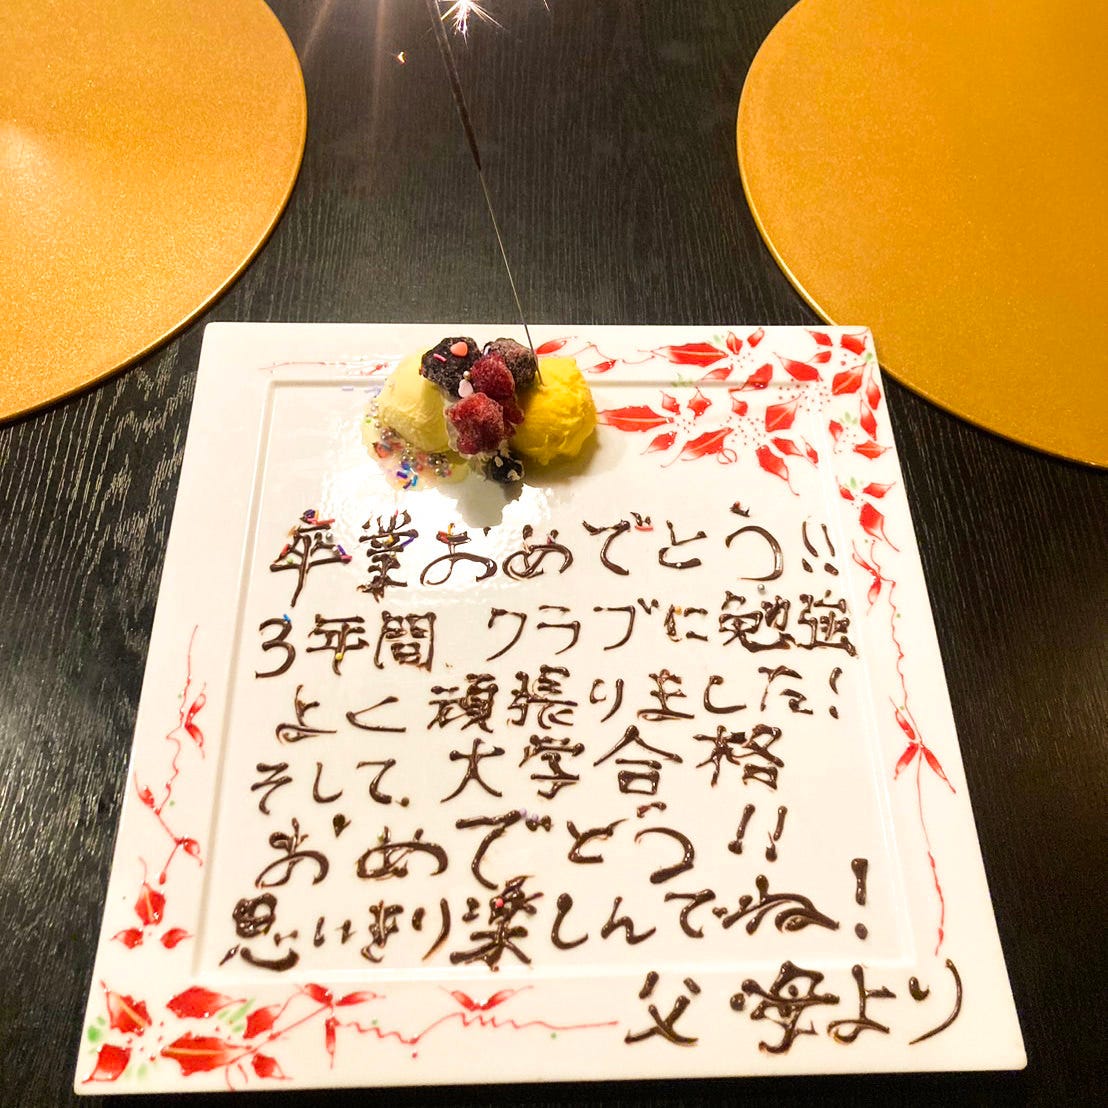 卒業おめでとう!!
3年間 クラブに勉強
よく頑張りました!
そして、大学合格
おめでとう!!
思いきり楽しんでね!
父母より